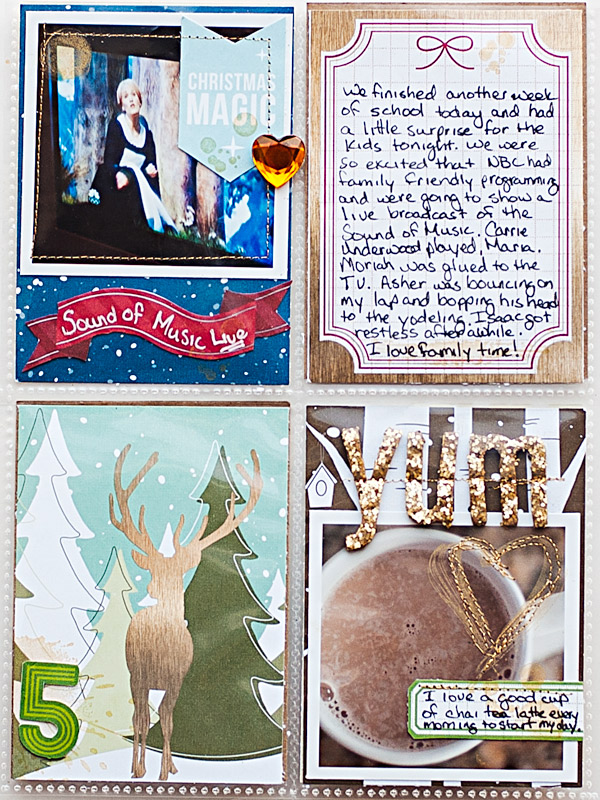 CHRISTMAS
MAGIC
Sound of Music Live
We finished another week
of school today and had
a little surprise for the
kids tonight. We were
so excited that NBC had
family friendly programming
and were going to show a
live broadcast of the
Sound of Music. Carrie
Underwood played, Maria.
Moriah was glued to the
TV. Asher was bouncing on
my lap and bopping his head
to the yodeling. Isaac got
restless after awhile.
I love family time!
5
yum
I love a good cup
of chai tea latte every
morning to start my day.